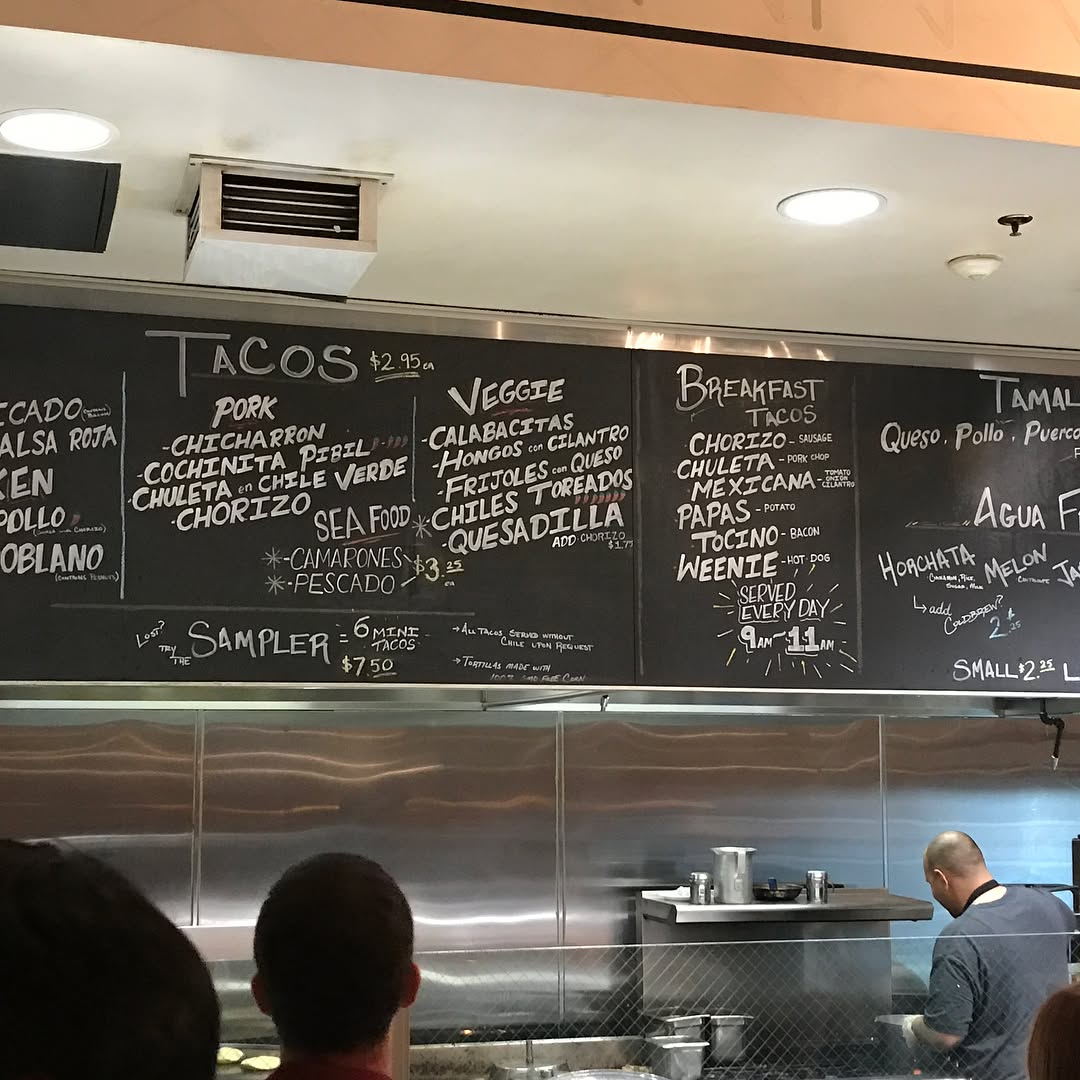 ICADO
ALSA ROJA
KEN
POLLO
OBLANO
(CONTAINS PEANUTS)
TACOS $2.95 ea
PORK
-CHICHARRON
-COCHINITA PIBIL
CHULETA en CHILE VERDE
-CHORIZO
SEAFOOD
*-CAMARONES
*-PESCADO
$3.25 ea
VEGGIE
-CALABACITAS
-HONGOS con CILANTRO
-FRIJOLES con QUESO
*CHILES TOREADOS
-QUESADILLA
ADD CHORIZO
$1.75
LOST?
TRY THE SAMPLER = 6 MINI TACOS
$7.50
→ALL TACOS SERVED WITHOUT
CHILE UPON REQUEST
→TORTILLAS MADE WITH
100% GMO FREE CORN
BREAKFAST
TACOS
CHORIZO - SAUSAGE
CHULETA - PORK CHOP
MEXICANA - TOMATO ONION CILANTRO
PAPAS - POTATO
TOCINO - BACON
WEENIE - HOT DOG
SERVED
EVERY DAY
9AM-11AM
TAMAL
QUESO, POLLO, PUERCO
AGUA F
HORCHATA MELON JA
CINNAMON, RICE,
SUGAR, MILK
CANTALOUPE
↳add
COLDBREW?
SMALL $2.25 L